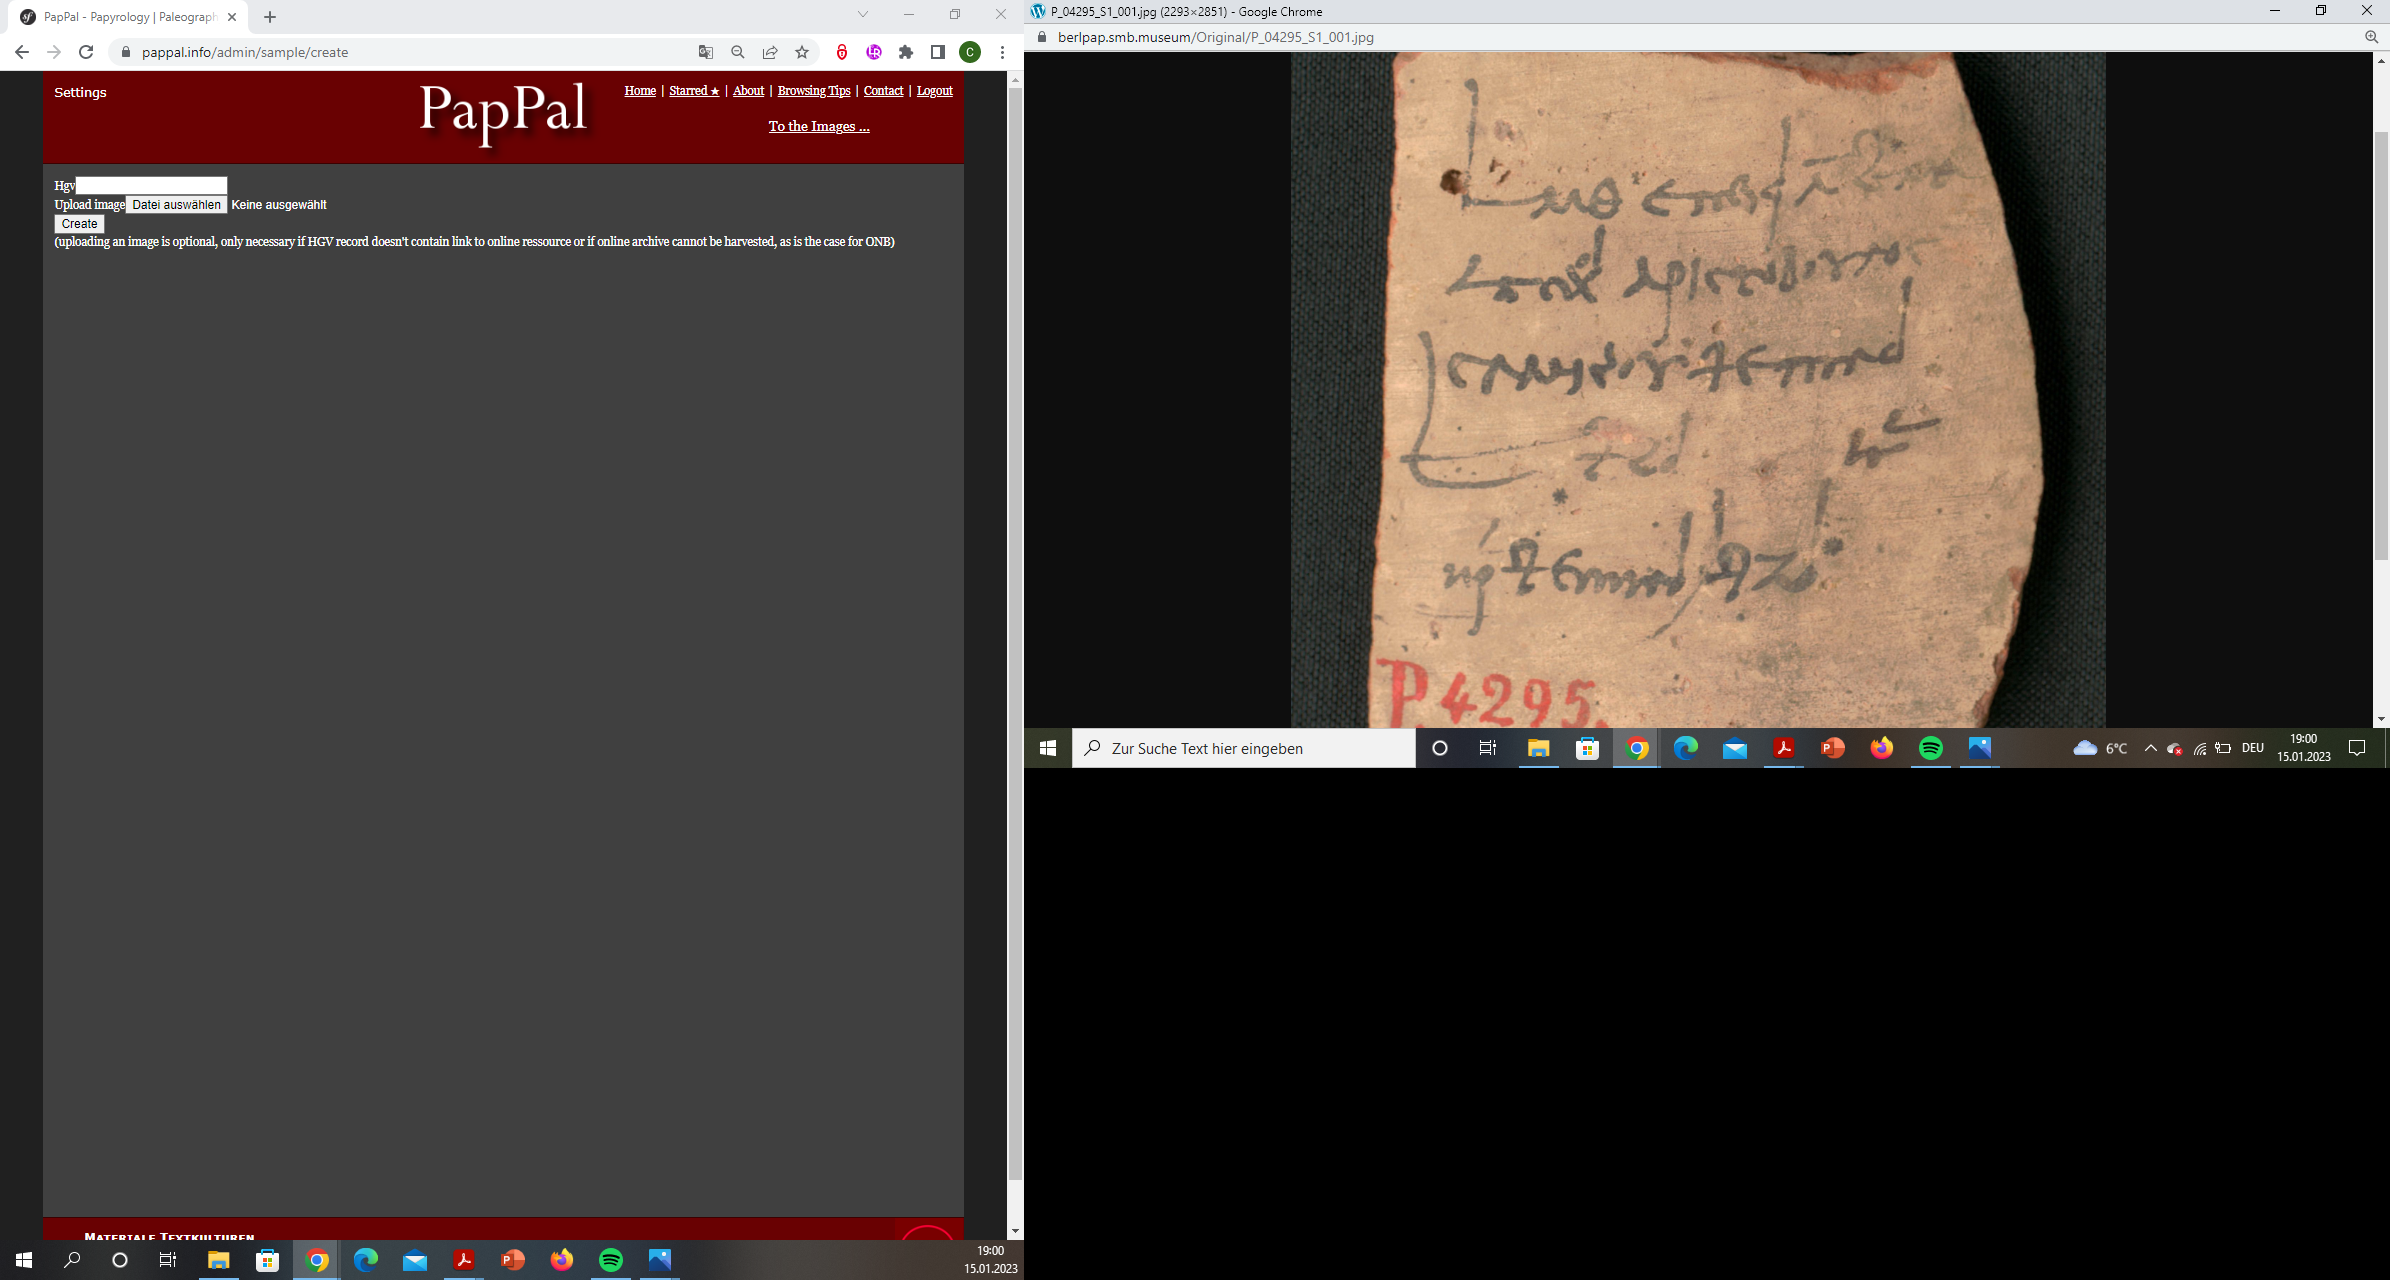 PapPal - Papyrology | Paleograph
pappal.info/admin/sample/create
C
Settings
PapPal
Home | Starred ★ | About | Browsing Tips | Contact | Logout
To the Images ...
Hgv
Upload image Datei auswählen Keine ausgewählt
Create
(uploading an image is optional, only necessary if HGV record doesn't contain link to online ressource or if online archive cannot be harvested, as is the case for ONB)
Materiale Textkulturen
19:00
15.01.2023
P_04295_S1_001.jpg (2293×2851) - Google Chrome
berlpap.smb.museum/Original/P_04295_S1_001.jpg
P. 4295.
Zur Suche Text hier eingeben
6°C
DEU
19:00
15.01.2023